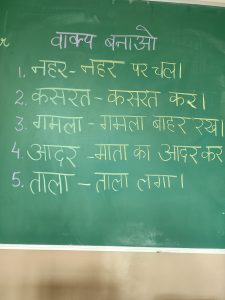 वाक्य बनाओ
1. नहर - नहर पर चल।
2. कसरत - कसरत कर।
3. गमला - गमला बाहर रख।
4. आदर - माता का आदर कर
5. ताला - ताला लगा।